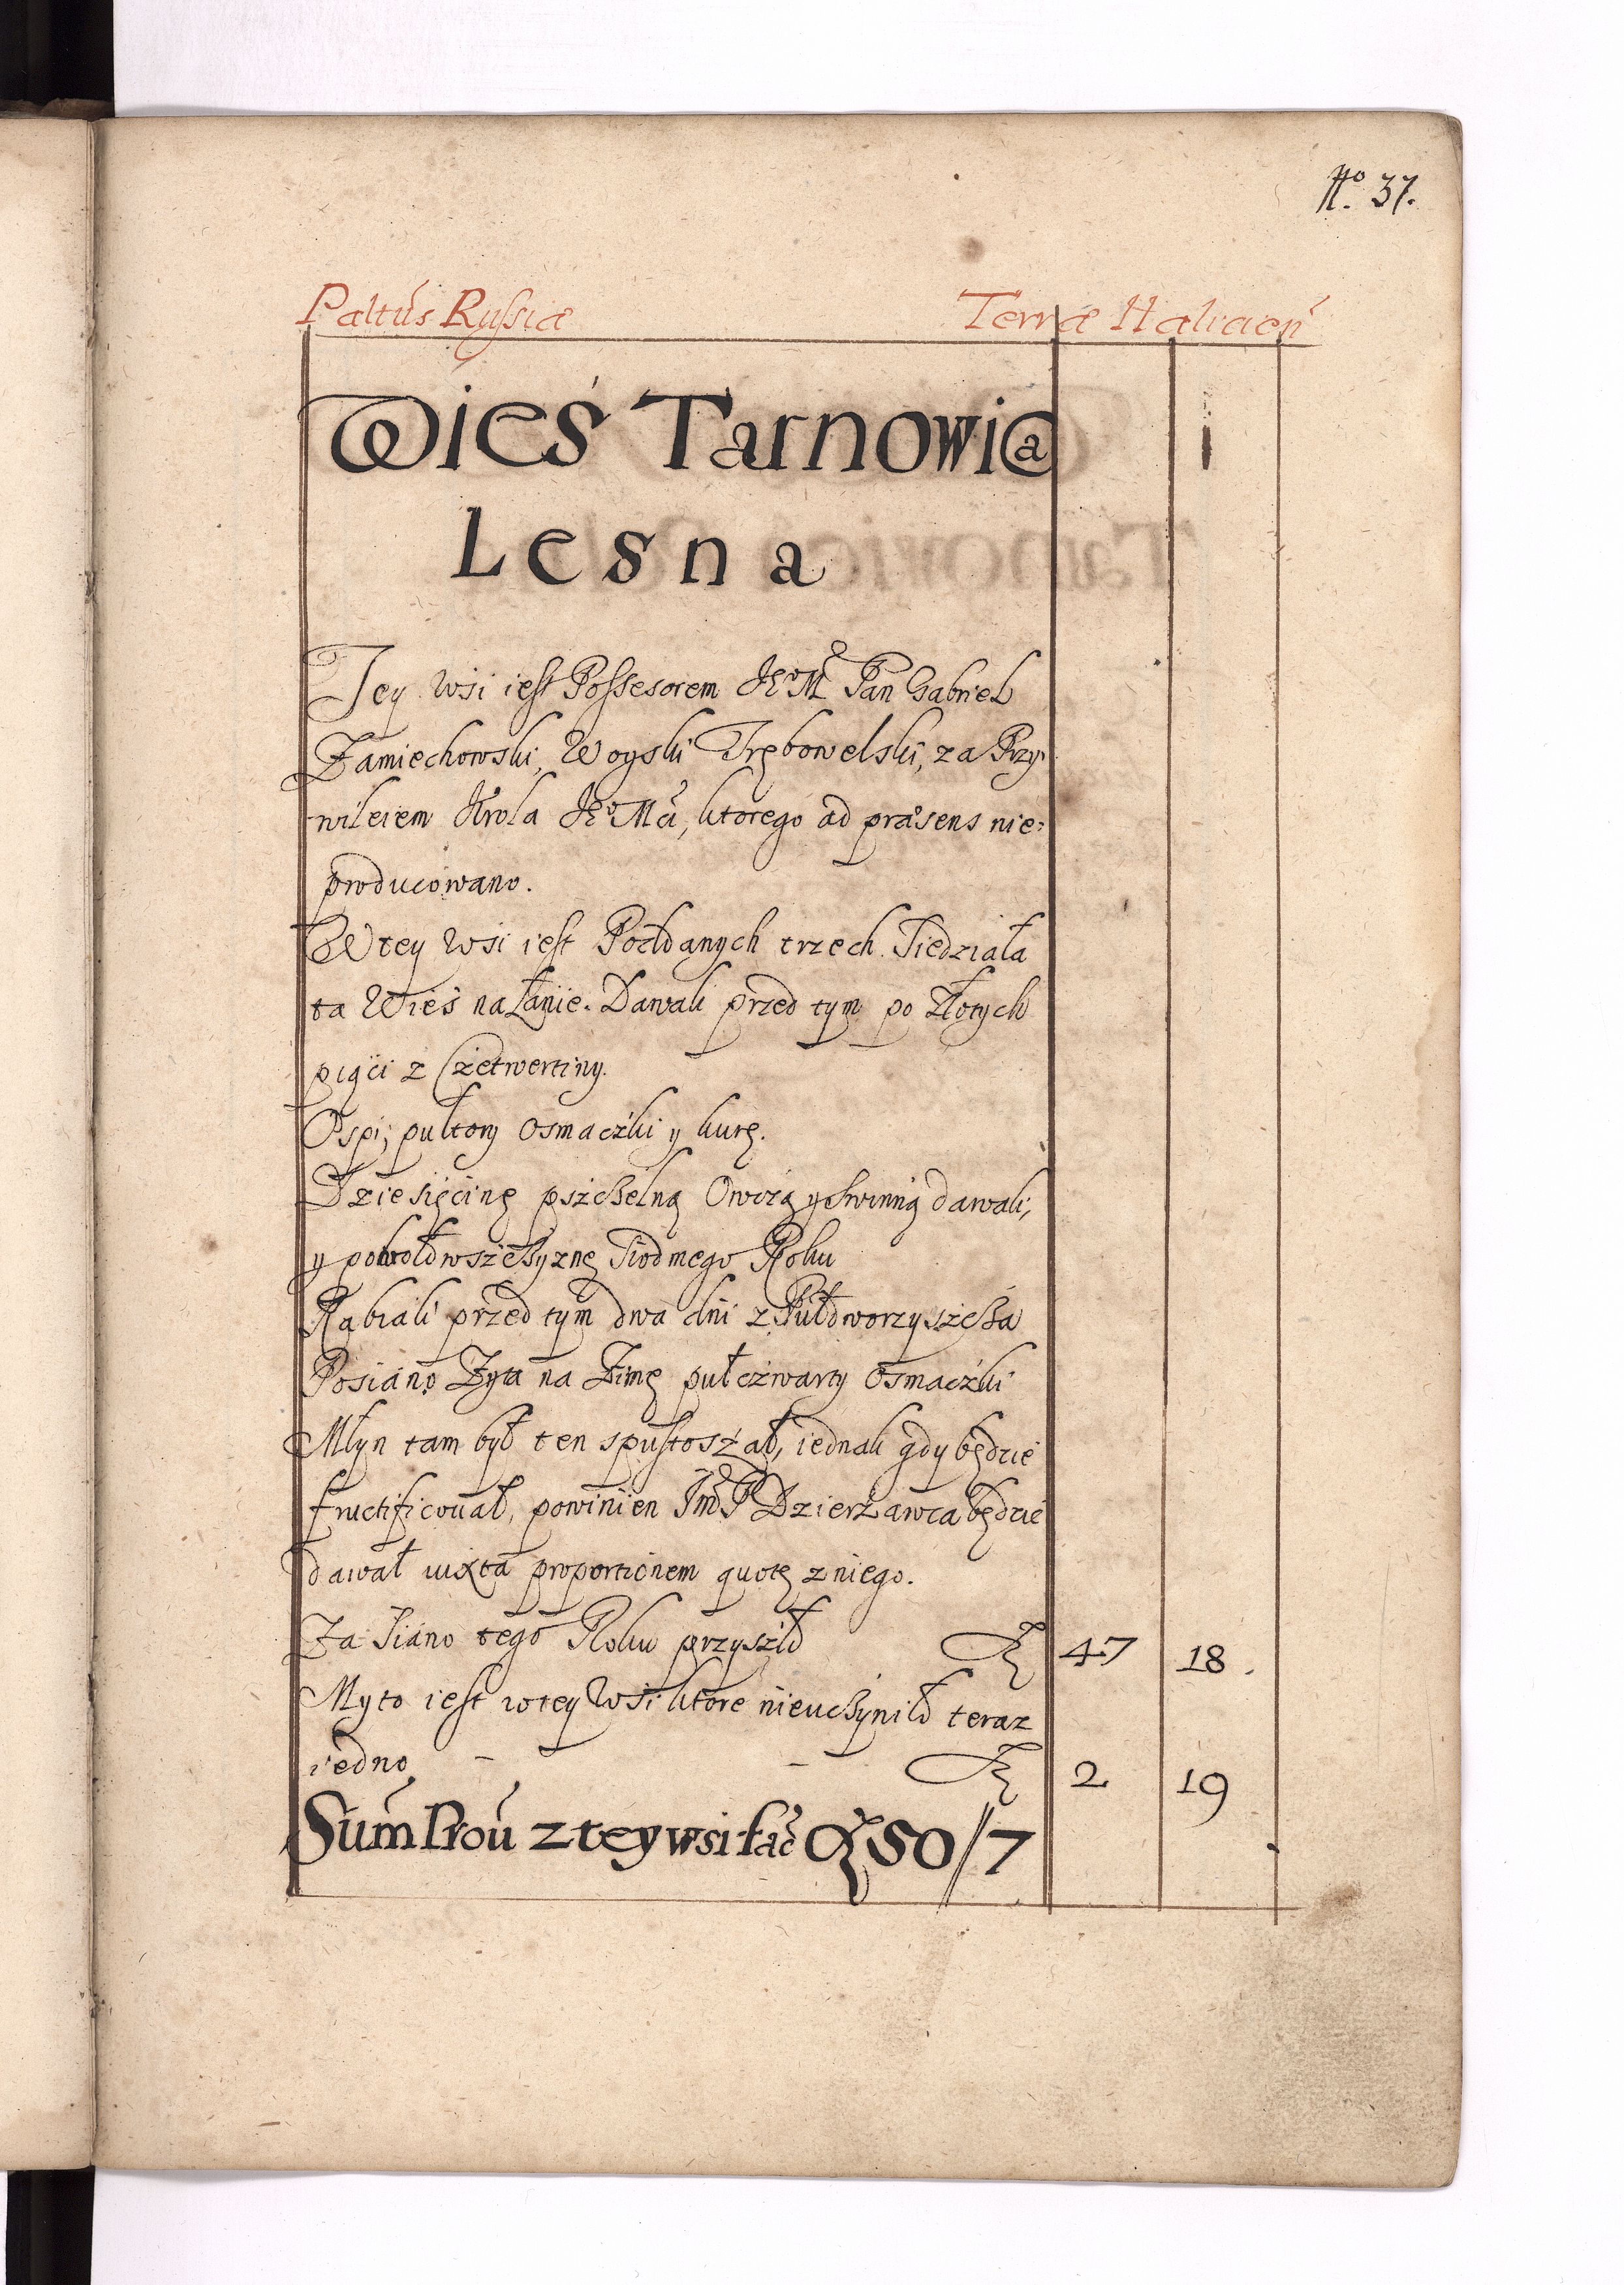 No. 37.
Paltus Russiæ Terræ Haliceń
Wieś Tarnowica
Lesna
Tey wsi iest Possesorem JEoMć Pan Gabriel
Zamiechowski, Woyski Trębowelski, za Przy
wileiem Krola JEo Mći, ktorego ad præsens nie:
producowano.
W tey wsi iest Poddanych trzech. Siedziała
ta Wieś na Łanie. Dawali przed tym po Złotych
pięći z Czetwertiny.
Ospi, pułtory osmaczki y kurę.
Dziesięcinę pszczelną Owczą y swinnią dawali,
y powołowszczyznę Siodmego Roku
Rabiali przed tym dwa dni z Pułdworzyszcza
Posiano Zyta na Zimę pułczwarty osmaczki
Młyn tam był ten spustoszał, iednak gdy będzie
fructificował, powinien JmP Dzierżawca będzie
dawał iuxta proportionem quotę z niego.
Za Siano tego Roku przyszło 47 18.
Myto iest w tey Wsi ktore nieuczyniło teraz
iedno - - 2 19
Sum̃ Prou z tey wsi fać 50//7